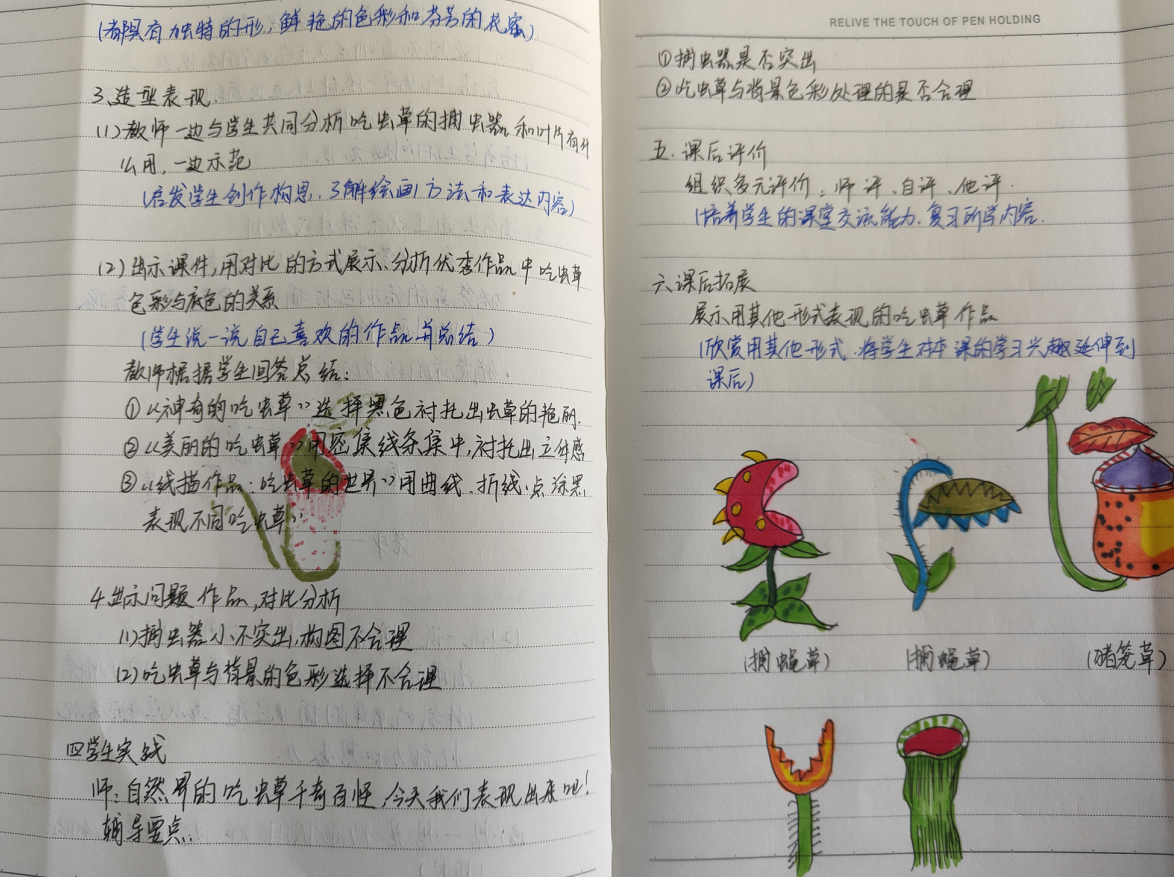 (都具有独特的形,鲜艳的色彩和芬芳的花蜜)
3.造型表现.
(1)教师一边与学生共同分析吃虫草的捕虫器和叶片有什
么用,一边示范
(启发学生创作构思,了解绘画方法和表达内容)
(2)出示课件,用对比的方式展示、分析优秀作品中吃虫草
色彩与底色的关系
(学生说一说自己喜欢的作品并总结)
教师根据学生回答总结:
①《神奇的吃虫草》选择黑色衬托出虫草的艳丽.
②《美丽的吃虫草》用密集线条集中,衬托出立体感
③《线描作品:吃虫草的世界》用曲线、折线、点涂黑
表现不同吃虫草
4.出示问题作品,对比分析
(1)捕虫器小不突出,构图不合理
(2)吃虫草与背景的色彩选择不合理
四学生实践
师:自然界的吃虫草千奇百怪,今天我们表现出来吧!
辅导要点:
RELIVE THE TOUCH OF PEN HOLDING
①捕虫器是否突出
②吃虫草与背景色彩处理的是否合理
五.课后评价
组织多元评价、师评、自评、他评.
(培养学生的课堂交流能力、复习所学内容.
六、课后拓展
展示用其他形式表现的吃虫草作品
(欣赏用其他形式.将学生对本课的学习兴趣延伸到
课后)
(捕蝇草) (捕蝇草) (猪笼草)